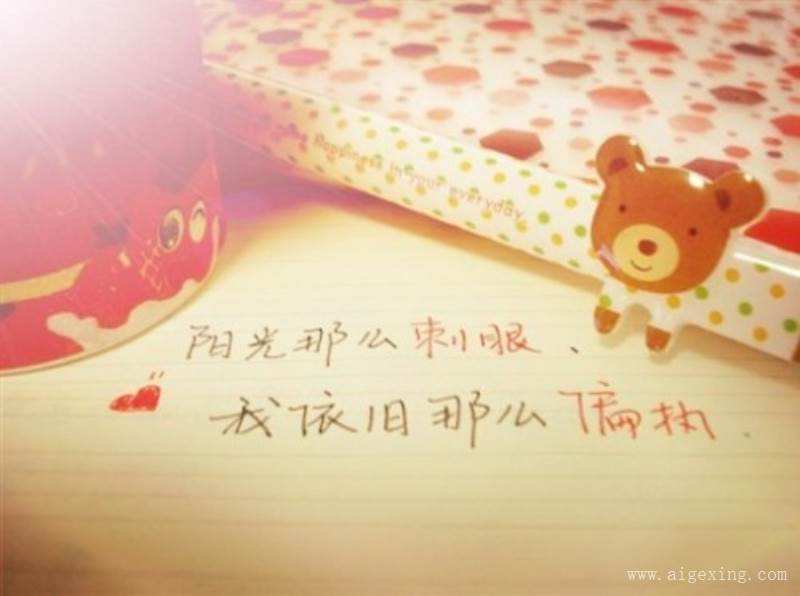 Happiness in your everyday
阳光那么刺眼、
我依旧那么偏执.
www.aigexing.com